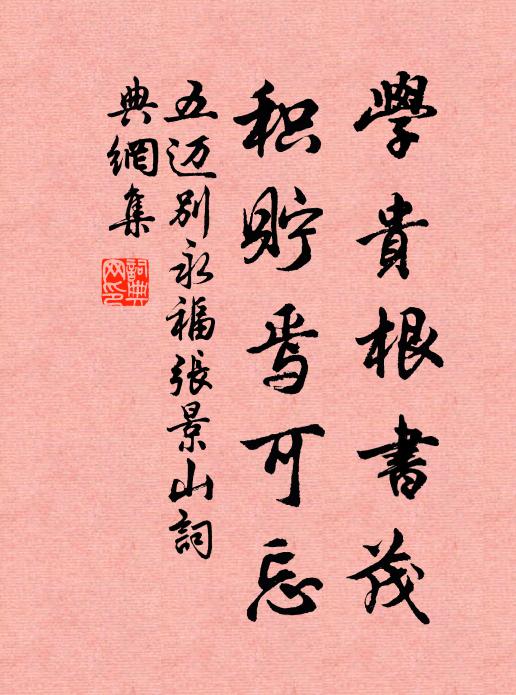 學貴根書茂
积貯焉可忘
五迈别永福張景山詞
典網集
詞典
网印